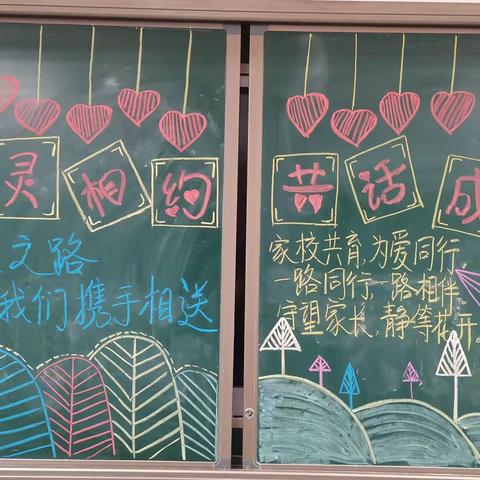 灵相约 共话成
之路
我们携手相送
家校共育,为爱同行。
一路同行,一路相伴。
守望家长,静等花开。